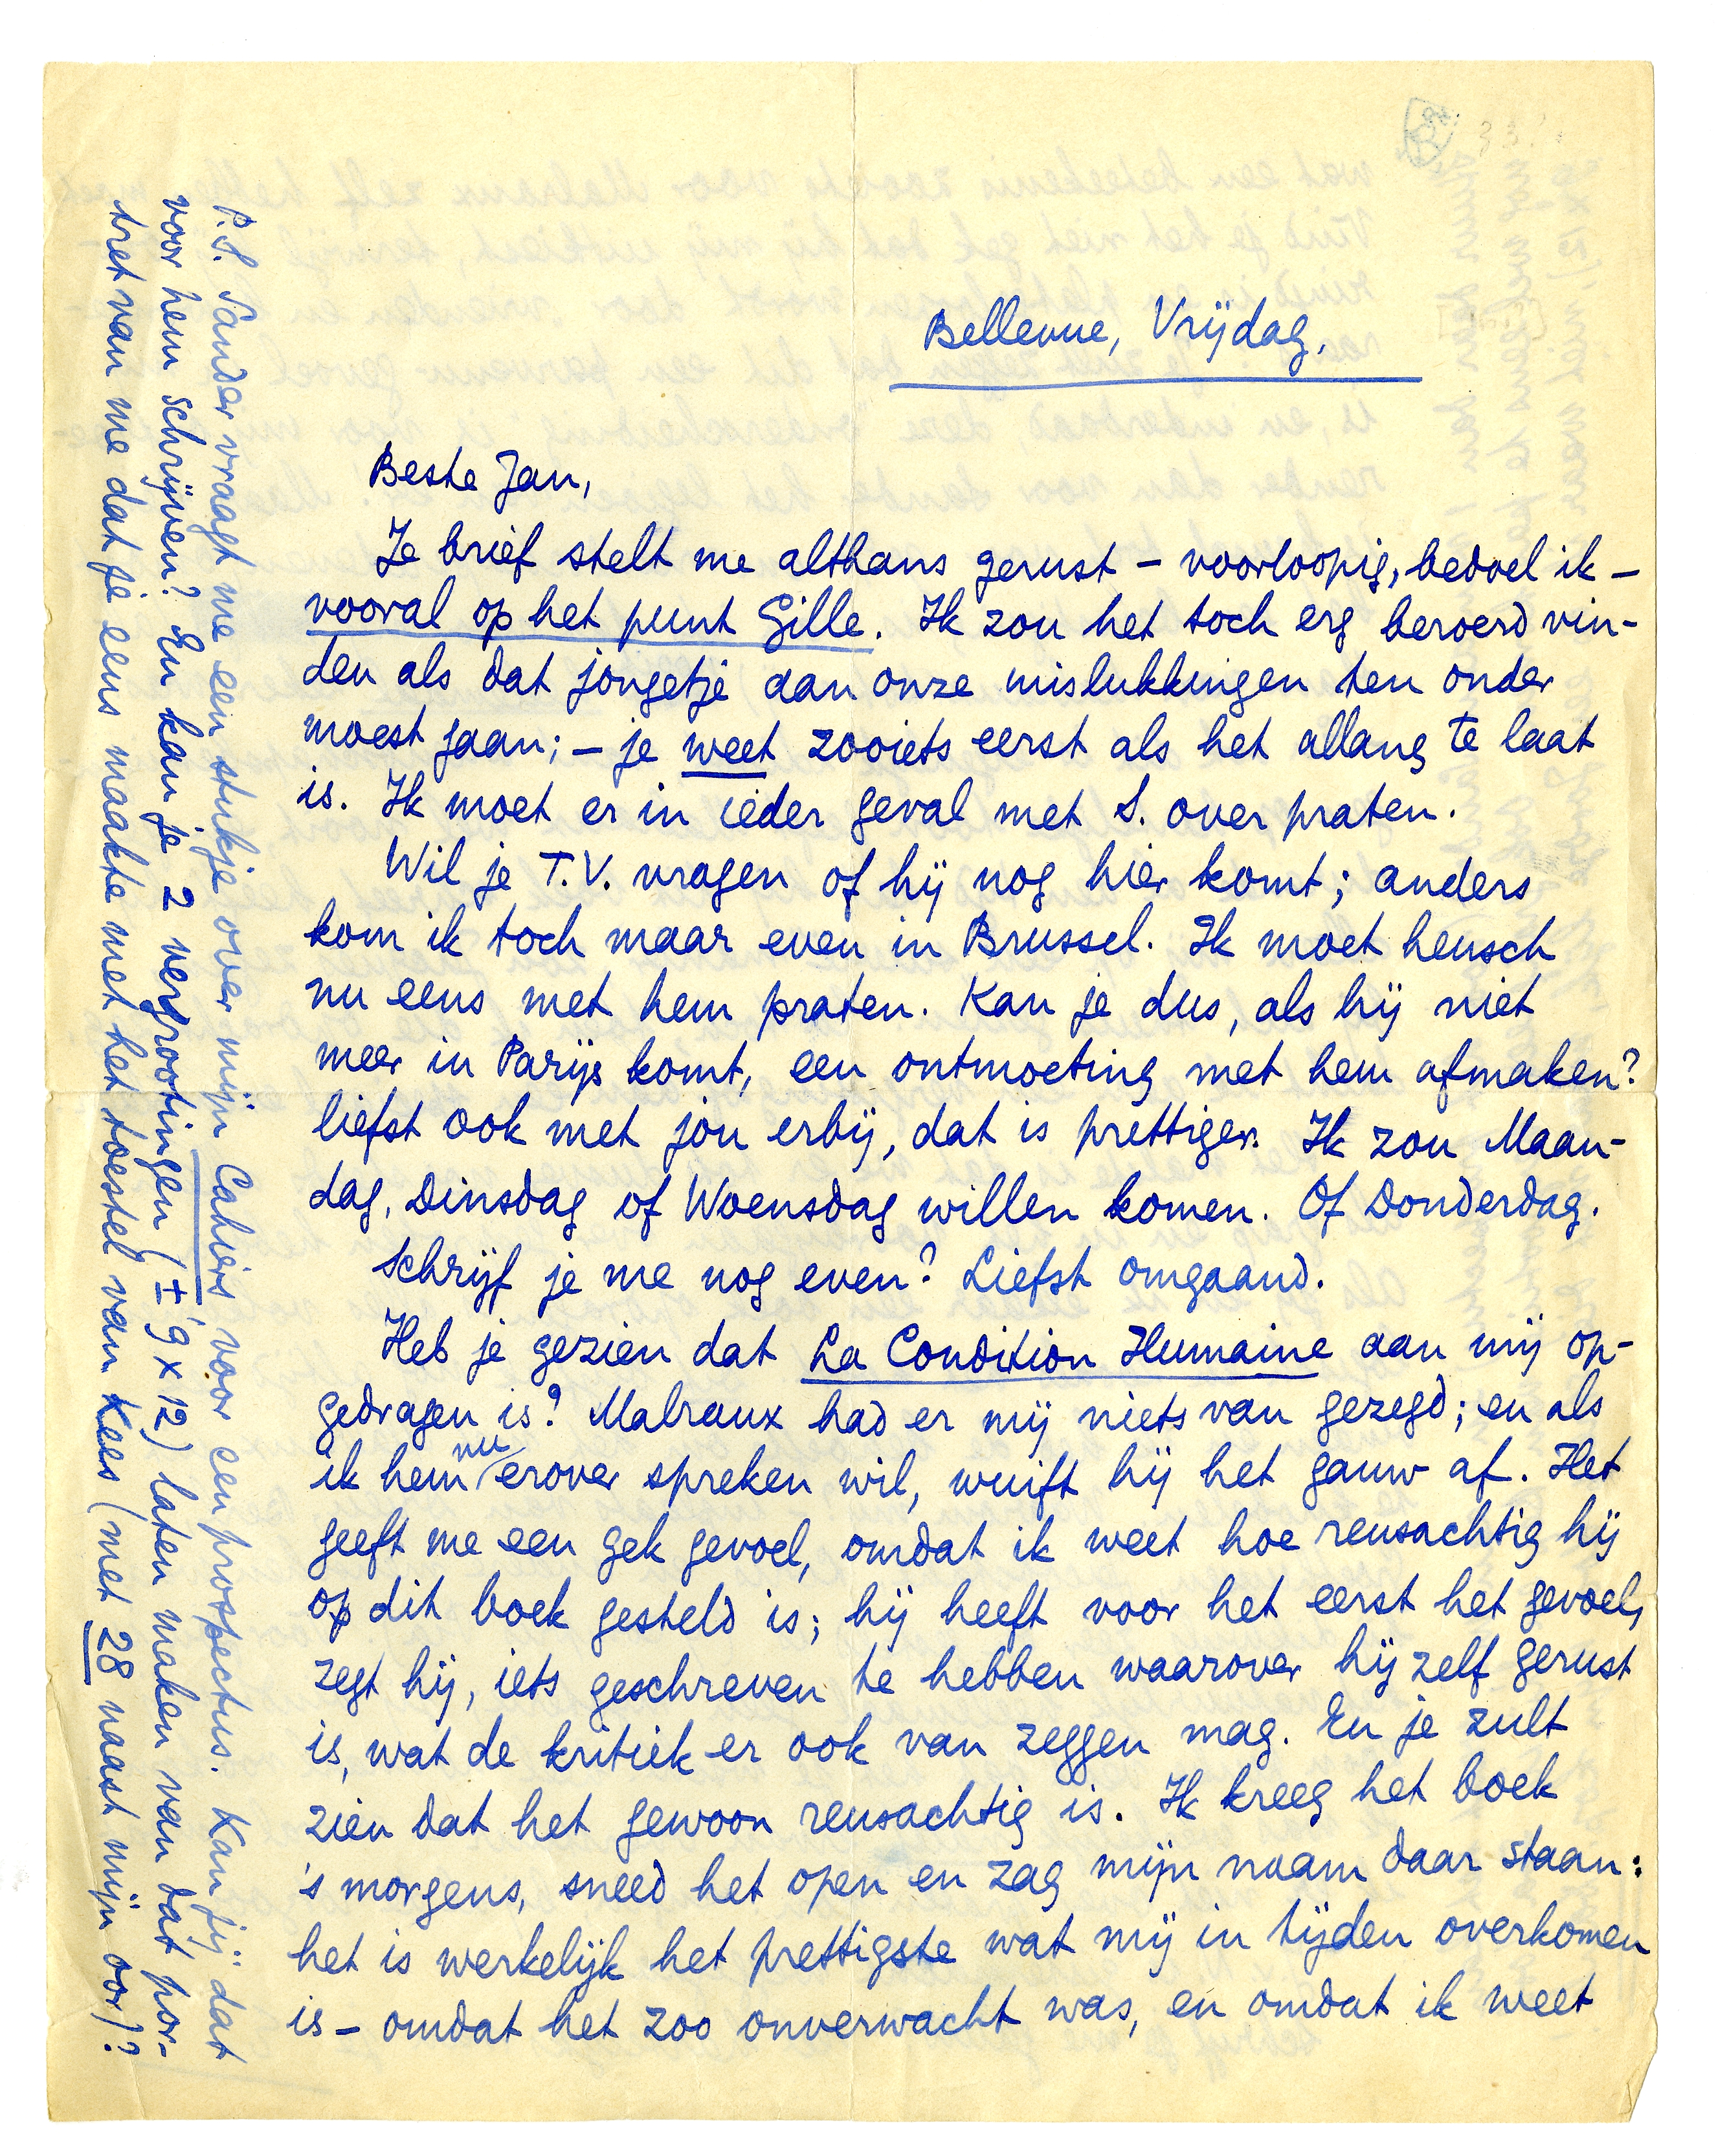 Bellevue, Vrijdag,
Beste Jan,
Je brief stelt me althans gerust – voorloopig, bedoel ik –
vooral op het punt Gille. Ik zou het toch erg beroerd vin-
den als dat jongetje aan onze mislukkingen ten onder
moest gaan; – je weet zooiets eerst als het allang te laat
is. Ik moet er in ieder geval met S. over praten.
Wil je T.V. vragen of hij nog hier komt; anders
kom ik toch maar even in Brussel. Ik moet heusch
nu eens met hem praten. Kan je dus, als hij niet
meer in Parijs komt, een ontmoeting met hem afmaken?
liefst ook met jou erbij, dat is prettiger. Ik zou Maan-
dag, Dinsdag of Woensdag willen komen. Of Donderdag.
Schrijf je me nog even? Liefst omgaand.
Heb je gezien dat La Condition Humaine aan mij op-
gedragen is? Malraux had er mij niets van gezegd; en als
ik hem nu erover spreken wil, wuift hij het gauw af. Het
geeft me een gek gevoel, omdat ik weet hoe reusachtig hij
op dit boek gesteld is; hij heeft voor het eerst het gevoel,
zegt hij, iets geschreven te hebben waarover hij zelf gerust
is, wat de kritiek er ook van zeggen mag. En je zult
zien dat het gewoon reusachtig is. Ik kreeg het boek
's morgens, sneed het open en zag mijn naam daar staan:
het is werkelijk het prettigste wat mij in tijden overkomen
is – omdat het zoo onverwacht was, en omdat ik weet
P.S. Sander vraagt me een stukje over mijn Cahiers voor een prospectus. Kan jij dat
voor hem schrijven? En kan je 2 vergrootingen (± 9 x 12) laten maken van dat por-
tret van me dat je eens maakte met het toestel van Kees (met 28 naast mijn oor)?